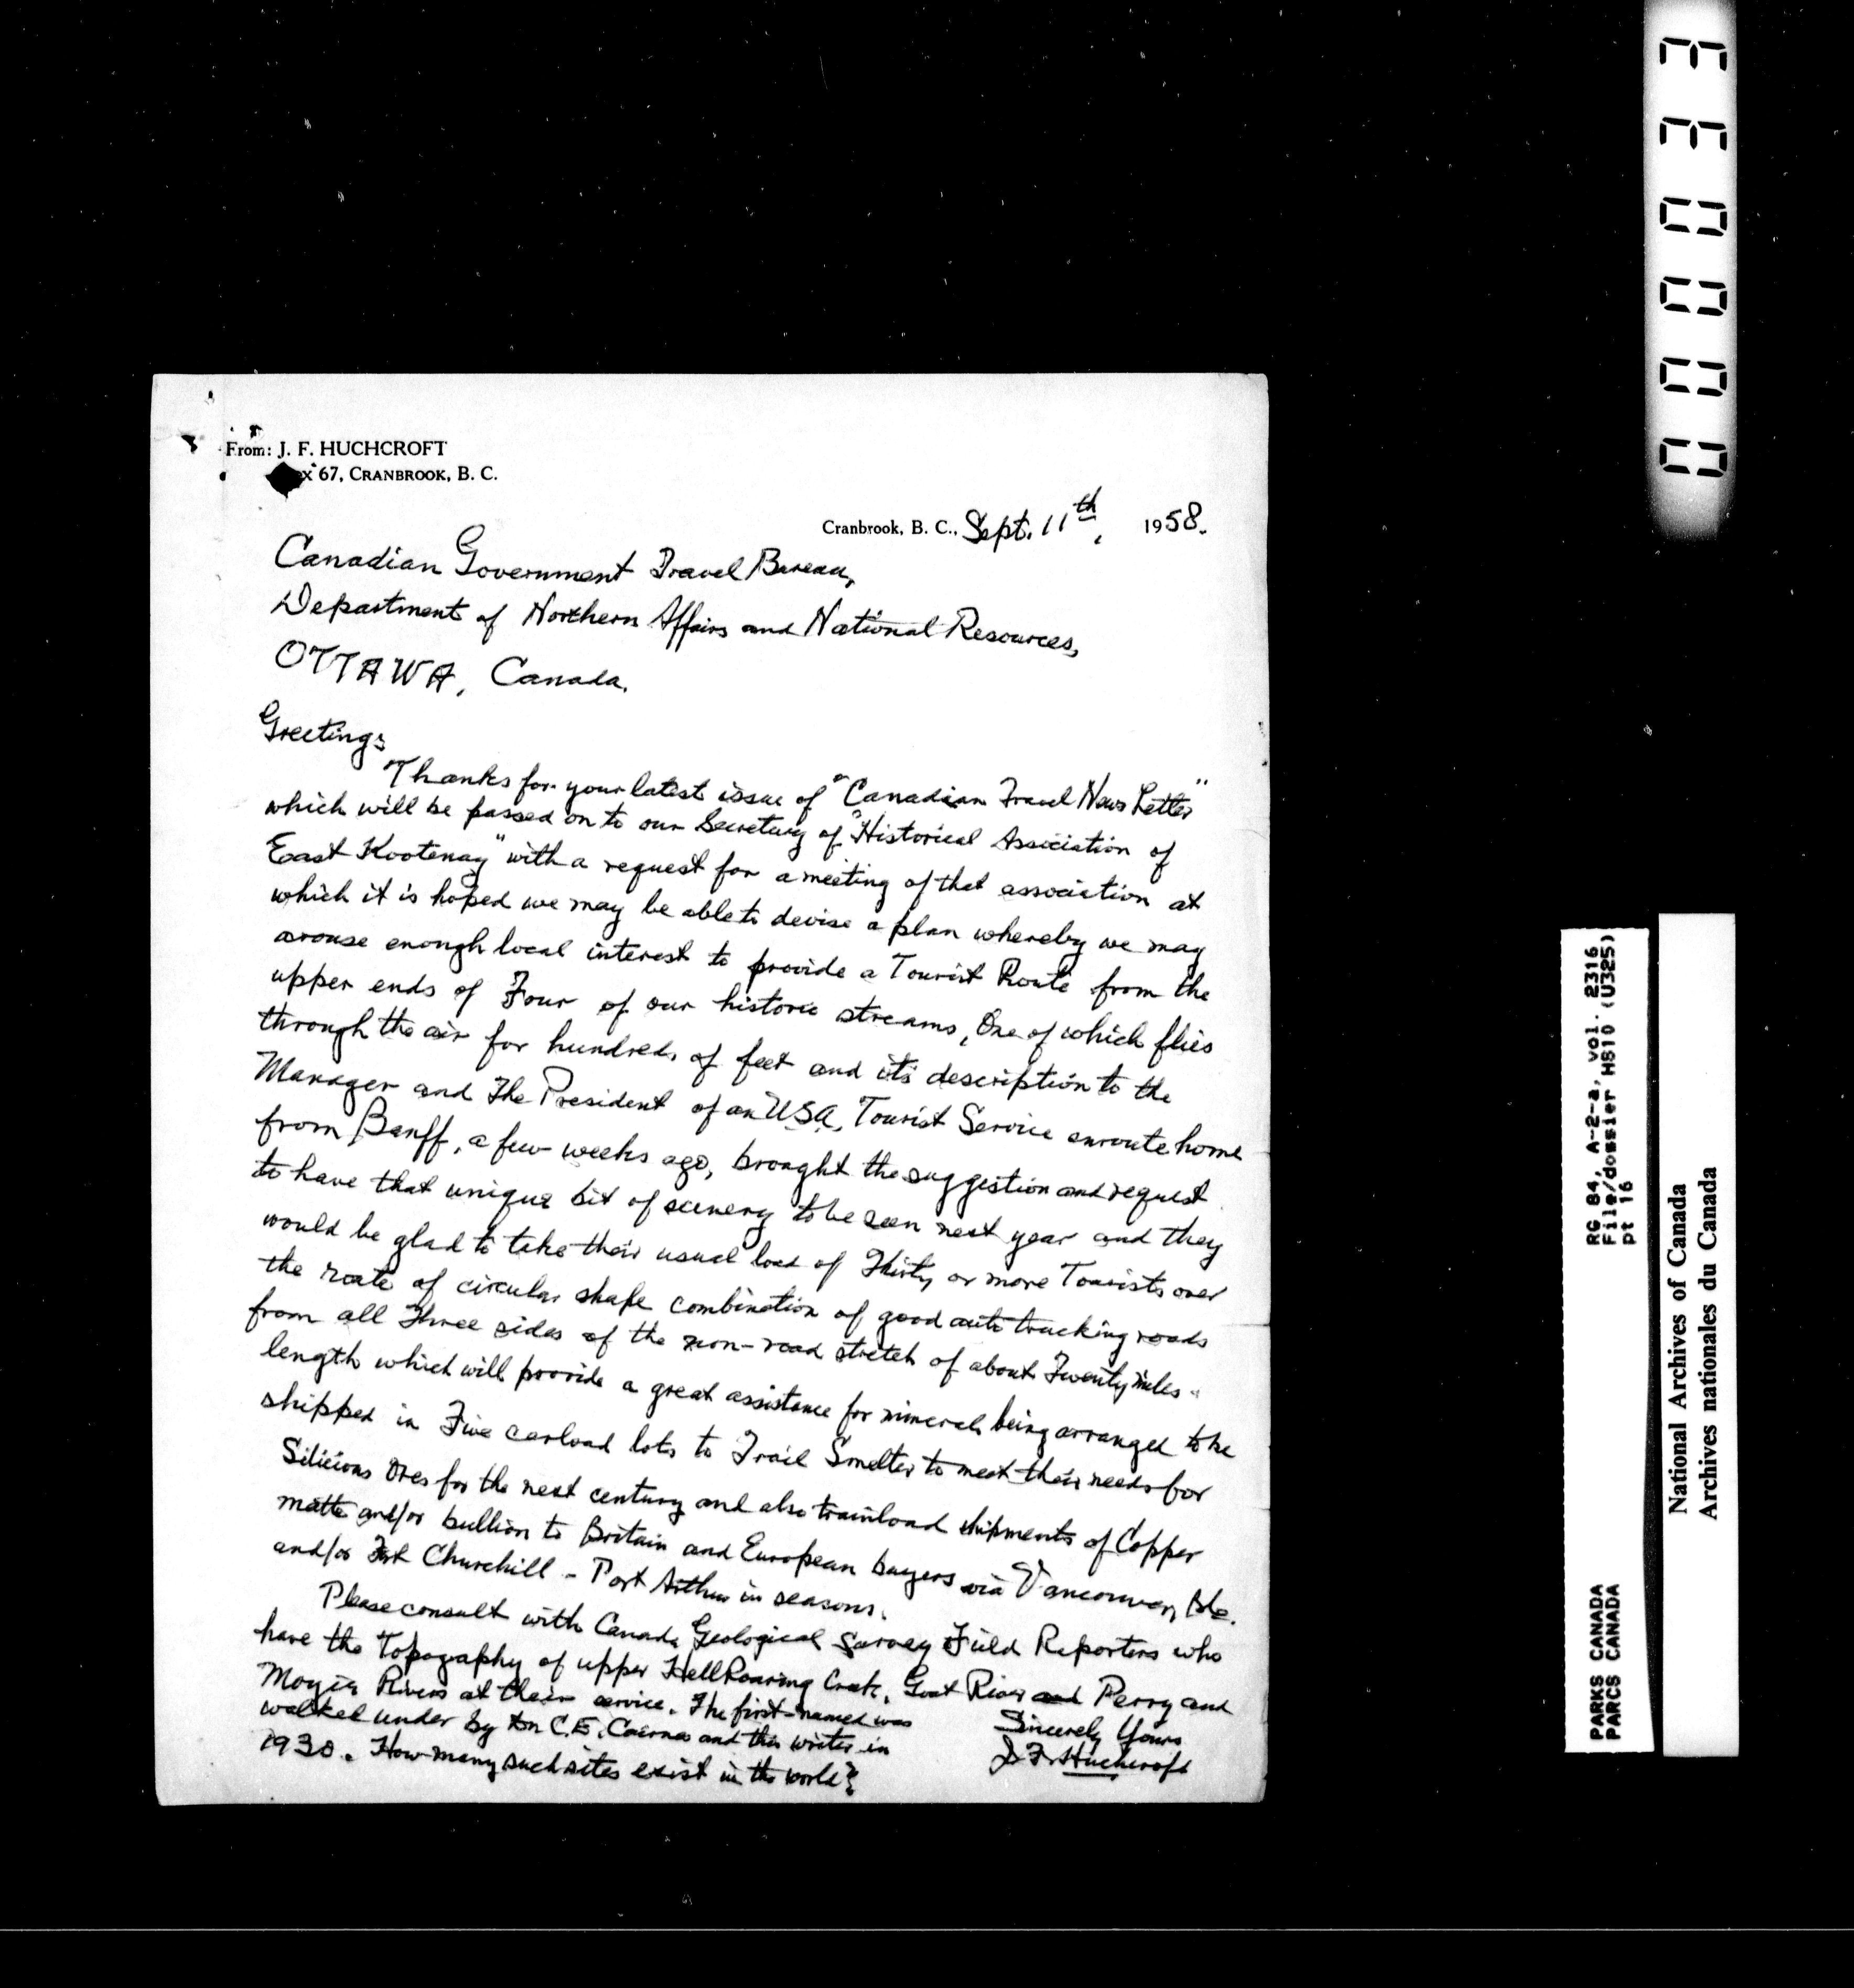 From: J. F. HUCHCROFT
x 67, CRANBROOK, B. C.
Cranbrook, B. C., Sept. 11th, 1958.
Canadian Government Travel Bureau,
Department of Northern Affairs and National Resources,
OTTAWA, Canada.
Greetings
Thanks for your latest issue of "Canadian Travel News Letter"
which will be passed on to our Secretary of "Historical Association of
East Kootenay" with a request for a meeting of that association at
which it is hoped we may be able to devise a plan whereby we may
arouse enough local interest to provide a Tourist Route from the
upper ends of Four of our historic streams, One of which flies
through the air for hundreds of feet and its description to the
Manager and The President of an USA, Tourist Service enroute home
from Banff, a few weeks ago, brought the suggestion and request
to have that unique bit of scenery to be seen next year and they
would be glad to take their usual load of Thirty or more Tourists over
the route of circular shape combination of good auto trucking roads
from all Three sides of the non-road stretch of about Twenty miles
length which will provide a great assistance for minerals being arranged to be
shipped in Five carload lots to Trail Smelter to meet their needs for
Silicious Ores for the next century and also trainload shipments of Copper
matte and/or bullion to Britain and European buyers via Vancouver,
and/or Fort Churchill - Port Arthur in seasons.
Please consult with Canada Geological Survey Field Reporters who
have the Topography of upper HellRoaring Creek, Goat River and Perry and
Moyie Rivers at their service. The first-named was
walked under by Dr. C.E. Cairnes and this writer in
1930. How many such sites exist in the world?
Sincerely Yours
J. F. Huchcroft
000033
RG 84, A-2-a, vol. 2316
File/dossier HS10 (U325)
pt 16
PARKS CANADA
PARCS CANADA
National Archives of Canada
Archives nationales du Canada